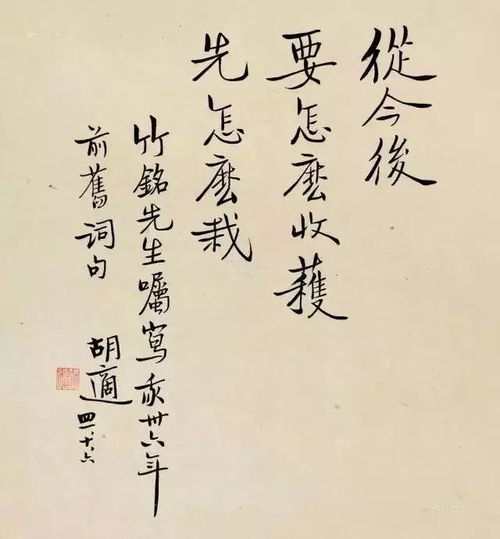 從今後
要怎麽收穫
先怎麽栽
竹銘先生囑寫我卅六年
前舊詞句
胡適
四一、十、六